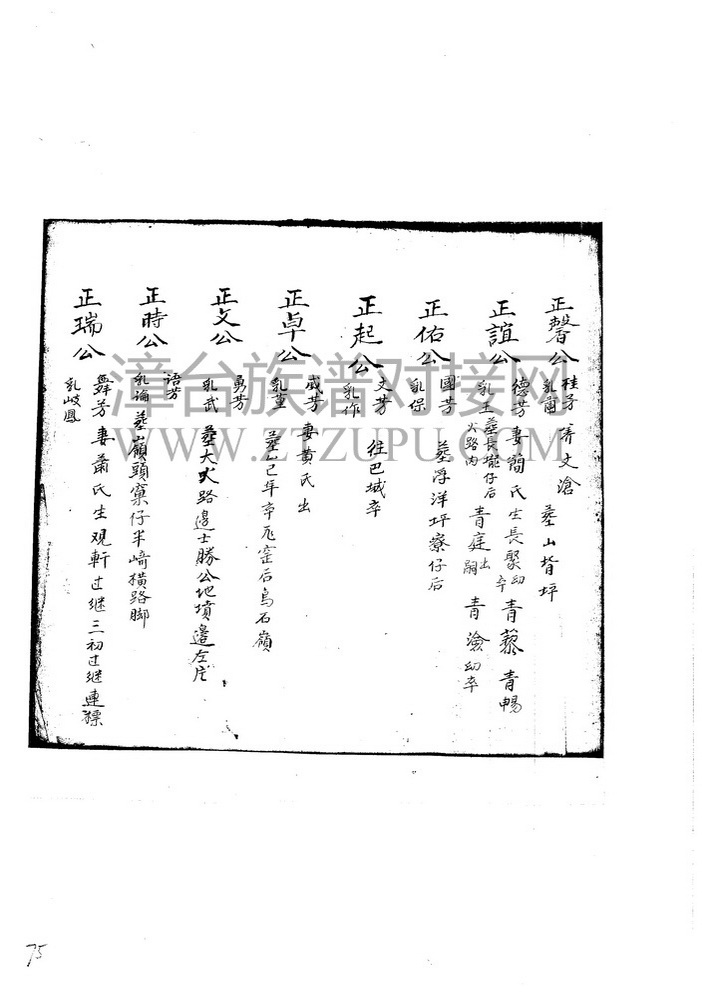 正馨公 桂芳 弟文滄 墓山皆坪
乳爾
正誼公 德芳 妻簡氏生長聚幼卒 青藜 青暢
乳玉 墓長壠仔后火路内 青庭出嗣 青澮幼卒
正佑公 國芳 墓浮洋坪寮仔后
乳保
正起公 文芳 往巴城卒
乳作
正卓公 威芳 妻黄氏出
乳董 墓己年卒瓦窑后烏石嶺
正文公 勇芳
乳武 墓大火路邊士勝公地墳邊左片
正時公 语芳
乳論 墓嶺頭窠仔半崎橫路脚
正瑞公 舞芳 妻蕭氏生观軒过继三初过继連
乳岐鳳
漳台族谱对接网
WWW.ZTZUPU.COM
75